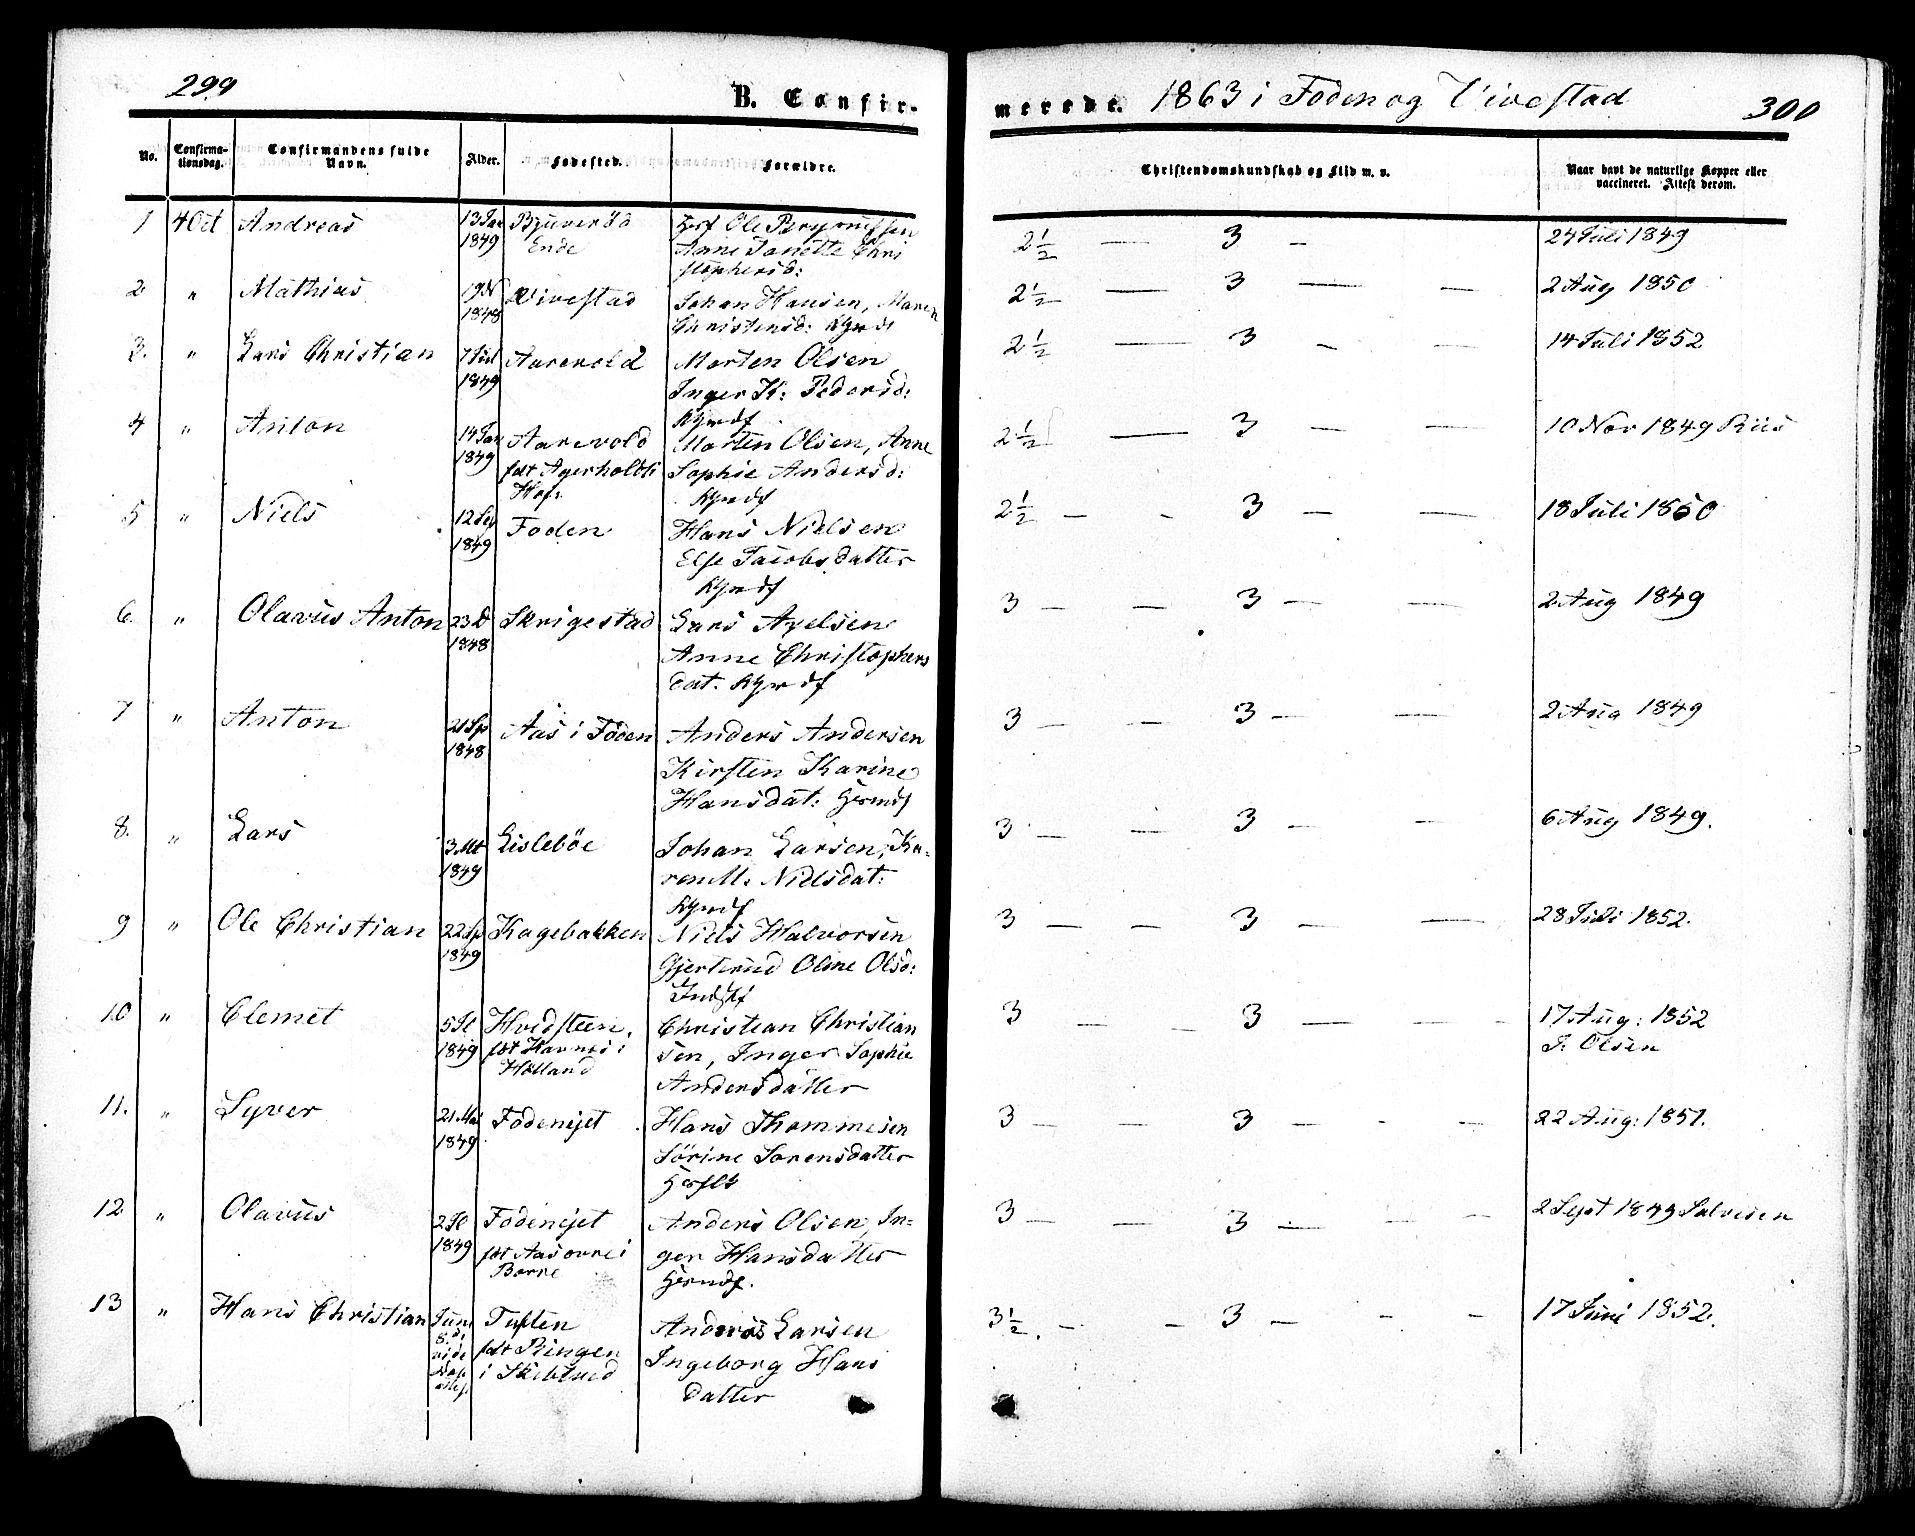 299
B. Confir-
merede. 1863 i Foden og Vivestad
300
No.
Confirma-
tionsdag.
Confirmandens fulde
Navn.
Alder.
Fødested.
Forældre.
Christendomskundskab og Flid m. v.
Naar havt de naturlige Kopper eller
vaccineret. Attest derom.
1 4 Oct Andreas 13 Jan 1849
Ende
Ole
Anne Janette Chri
stophersd:
2½ — 3 — 24 Juli 1849
2 " Mathias 19 N 1848 Vivestad
Johan Hansen, Maren
Christensd:
2½ — 3 — — 2 Aug 1850
3. " Lars Christian 7 Jul 1849 Aarevold
Morten Olsen
Inger K: Pedersd:
2½ — 3 — — 14 Juli 1852
4 " Anton 14 Jan 1849 Aarevold
født Agerholdt i
Hof:
Morten Olsen, Anne
Sophie Andersd:
2½ — 3 — — 10 Nov 1849 Riis
5 " Niels 12 Sep 1849 Foden
Hans Nielsen
Else Jacobsdatter
2½ — - 3 — — 18 Juli 1850
6. " Olavus Anton 23 D 1848 Skrigestad
Lars Axelsen
Anne Christophers
dat.
3 — — 3 — — 2 Aug 1849
7 " Anton 21 Sp 1848 Aas i Foden
Anders Andersen
Kirsten Karine
Hansdat:
3 — — 3 — — 2 Aug 1849
8. " Lars 3 Mt 1849 Lislebøe
Johan Larsen, Ka-
ren M. Nielsdat:
3 — — 3 — — 6 Aug 1849.
9 " Ole Christian 22 Sp 1849 Kagebakken
Niels Halvorsen
Gjertrud Oline Olsd:
3 — — 3 — — 28 Juli 1852.
10 " Clemet 5 Jl 1849 Hvidsteen,
født Havnes i
Holland
Christian Christian
sen, Inger Sophie
Andersdatter
3 — — 3 — — 17 Aug: 1852
Olsen
11. " Syver 21 Mai 1849 Fodenejet
Hans Thommesen
Sørine Sørensdatter
3 — — 3 — - — 22 Aug: 1851.
12 " Olavus 2 Jl 1849 Fodenejet
født Aas øvre i
Borre
Anders Olsen, In-
ger Hansdatter
3 — — 3 — — 2 Sept 1849 Salvesen
13 " Hans Christian Juni
Tuften
født Ringen
i
Anders Larsen
Ingeborg Hans
datter
3½. — - 3 — - — 17 Juni 1852.